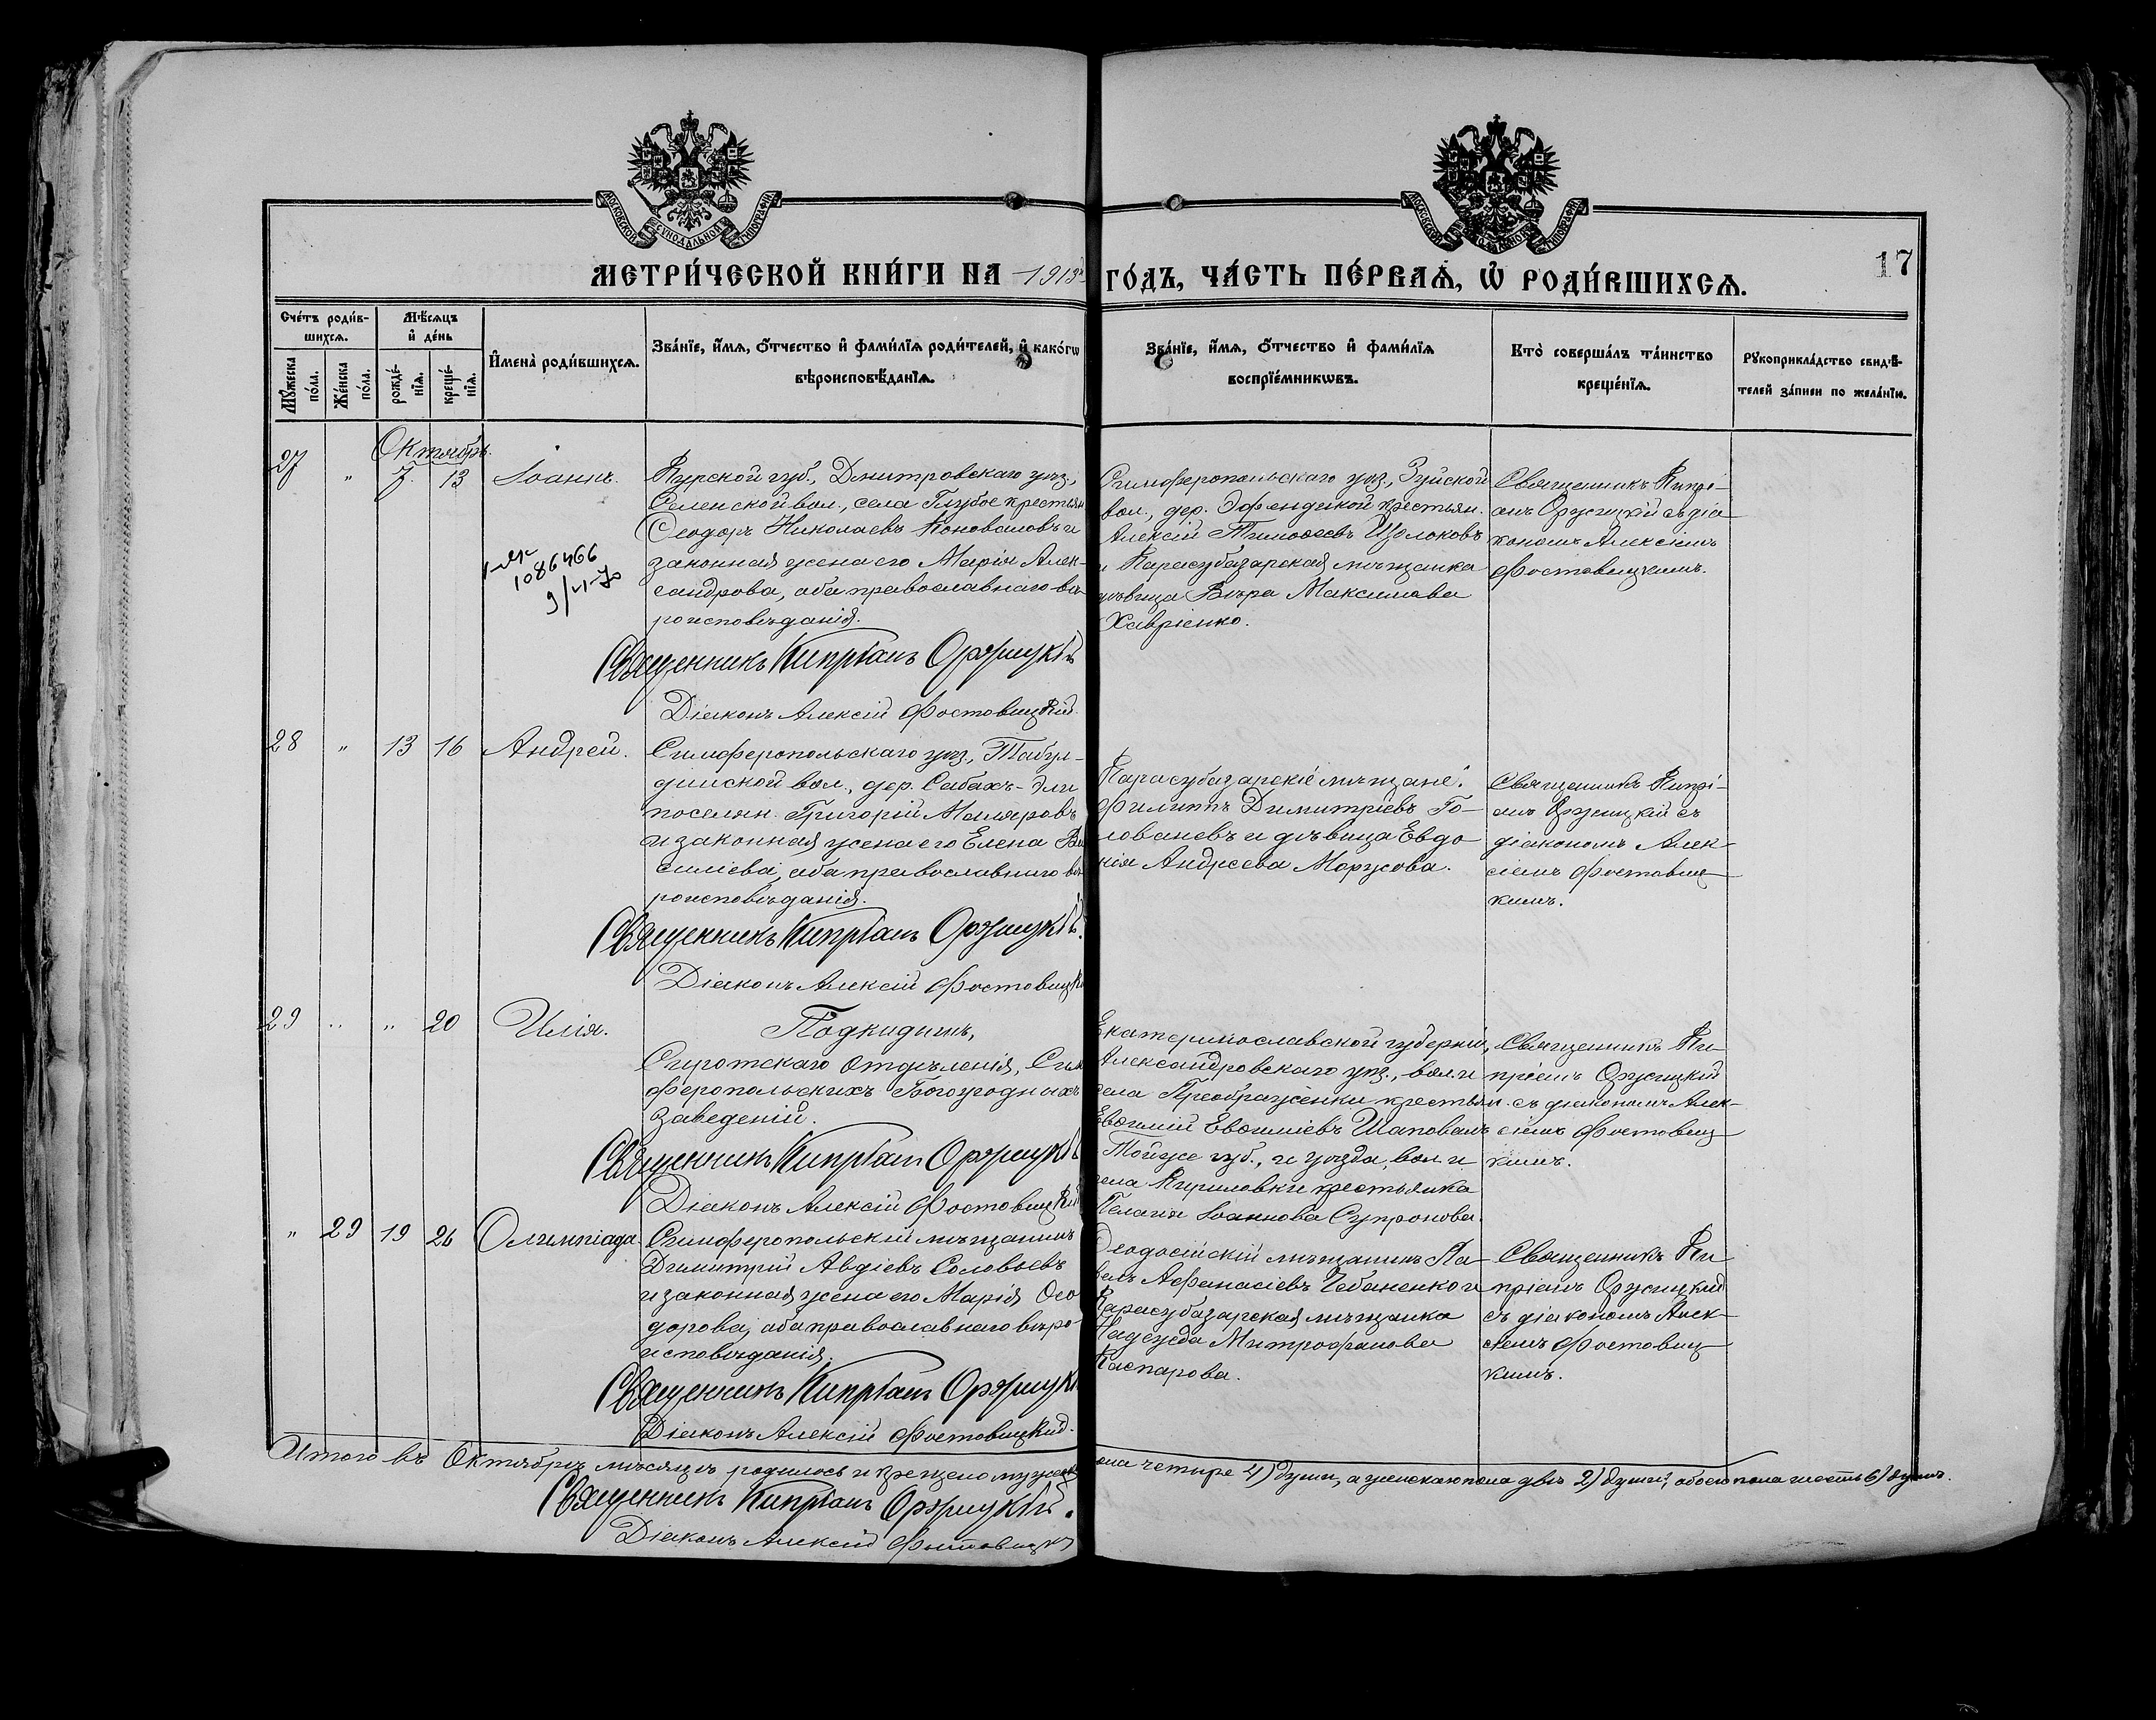 МЕТРИ́ЧЕСКОЙ КНИ́ГИ НА 1913й ГО́ДЪ, ЧА́СТЬ ПЕ́РВАѦ, Ѽ РОДИ́ВШИХСѦ.
17
МОСКОВСКОЙ СѴНОДАЛЬНОЙ ТИПОГРАФІИ
Сче́тъ роди́в-
шихсѧ.
Мѣ́сѧцъ
и҆ де́нь
Мꙋ́жеска по́ла.
Же́нска по́ла.
рожде́-
нїѧ.
креще́-
нїѧ.
И҆мена̀ роди́вшихсѧ.
Зва́нїе, и҆́мѧ, ѻ҆́тчество и҆ фами́лїѧ роди́телей, и҆ како́гѡ
вѣроисповѣ́данїѧ.
Зва́нїе, и҆́мѧ, ѻ҆́тчество и҆ фами́лїѧ
воспрїе́мникѡвъ.
Кто̀ соверша́лъ та́инство
креще́нїѧ.
Рꙋкоприкла́дство свидѣ́-
телей за́писи по жела́нїю.
Октябрь.
27 " 7. 13 Іоаннъ.
1086466
Курской губ., Дмитровскаго уѣз.,
Селенской вол., села Глубое крестьян
Ѳеодоръ Николаевъ Коноваловъ и
законная жена его Марія Алек-
сандрова, оба православнаго вѣ-
роисповѣданія.
Священникъ Кипріанъ Оржицкій
Діаконъ Алексій Фостовицкій.
Симферопольскаго уѣз., Зуйской
вол., дер. Эфендикой крестьян.
Алексій Тимоѳеевъ Щолоковъ
и Карасубазарская мѣщанка
дѣвица Вѣра Максимова
Хавріенко.
Священникъ Кипрі-
анъ Оржицкій съ діа
кономъ Алексіемъ
Фостовицкимъ.
28 " 13 16 Андрей.
Симферопольскаго уѣз., Табул-
динской вол., дер. Сабахъ-Эли
поселян. Григорій Маляровъ
и законная жена его Елена Ва
силіева, оба православнаго вѣ
роисповѣданія.
Священникъ Кипріанъ Оржицкій.
Діаконъ Алексій Фостовицкі
Карасубазарскіе мѣщане:
Филиппъ Димитріевъ Го-
ловачевъ и дѣвица Евдо
кія Андреева Марусова.
Священникъ Кипрі-
анъ Оржицкій съ
діакономъ Алек-
сіемъ Фостовиц-
кимъ.
29 " " 20 Илія.
Подкидышъ,
Сиротскаго отдѣленія, Сим
феропольскихъ Богоугодныхъ
заведеній.
Священникъ Кипріанъ Оржицкі
Діаконъ Алексій Фостовицкій
Екатеринославской губерніи,
Александровскаго уѣз., вол. и
села Преображенки крестьян.
Евѳимій Евѳиміевъ Шаповалъ
Той же губ., и уѣзда, вол. и
села Кириловки крестьянка
Пелагія Іоаннова Супронова.
Священникъ Ки-
пріанъ Оржицкій
съ діакономъ Алек-
сіемъ Фостовиц-
кимъ.
" 29 19 26 Олимпіада
Симферопольскій мѣщанинъ
Димитрій Авдіевъ Соловьевъ
и законная жена его Марія Ѳео
дорова, оба православнаго вѣро-
исповѣданія.
Священникъ Кипріанъ Оржицкі
Діаконъ Алексій Фостовицкій.
Ѳеодосійскій мѣщанинъ Па-
велъ Афанасіевъ Чебаненко и
Карасубазарская мѣщанка
Надежда Митрофанова
Каспарова.
Священникъ Ки
пріанъ Оржицкій
съ діакономъ Алек-
сіемъ Фостовиц-
кимъ.
Итого въ Октябрѣ мѣсяцѣ родилось и крещено мужеска пола четыре 4) души, а женскаго пола двѣ 2) души, обоего пола шесть 6) душъ.
Священникъ Кипріанъ Оржицкій.
Діаконъ Алексій Фостовицкі